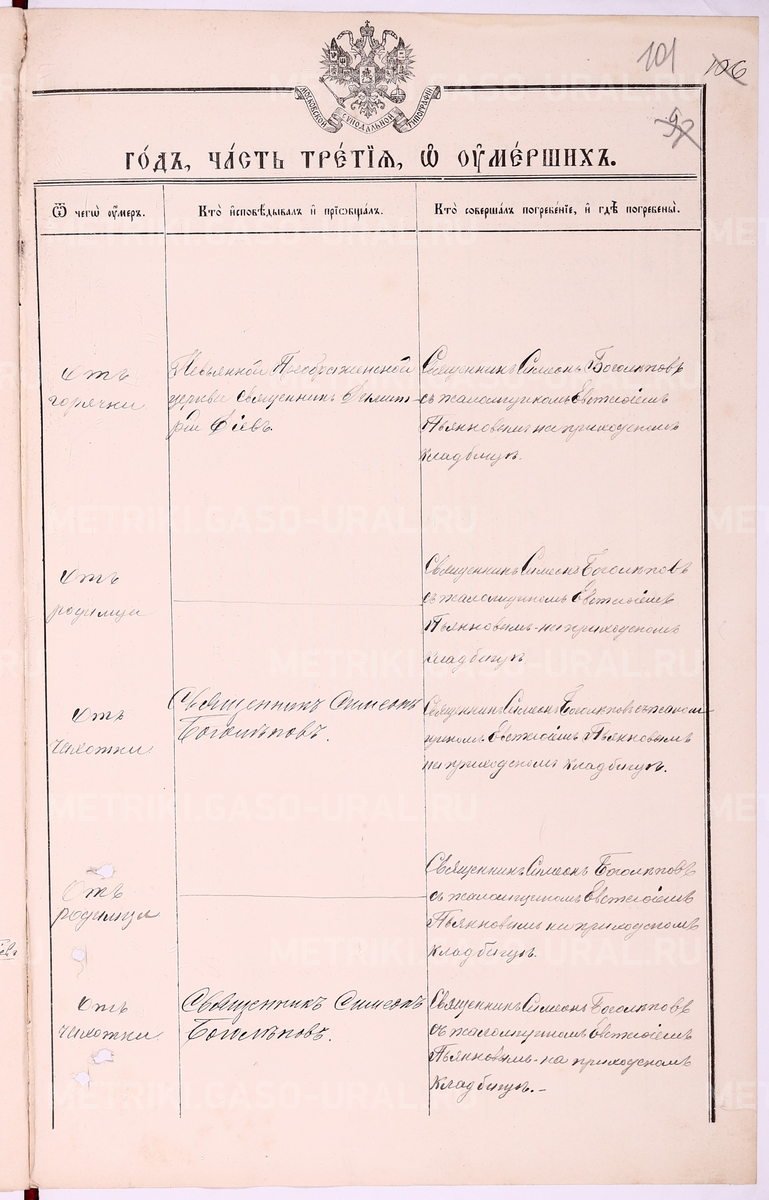 101
106
97
МОСКОВСКОЙ СѴНОДАЛЬНОЙ ТИПОГРАФІИ
ГО́ДЪ, ЧА́СТЬ ТРЕ́ТІЯ, Ѡ҆ ОУ҆МЕ́РШИХЪ.
Ѿ чегѡ̀ оу҆́меръ.
Кто̀ и҆сповѣ́дывалъ и҆ прїѡбща́лъ.
Кто̀ соверша́лъ погребе́нїе, и҆ гдѣ̀ погребены̀.
Отъ
горячки
Невьянной Преображенской
церкви священникъ Димит-
рій Фіевъ.
Священникъ Симеонъ Боголѣповъ
съ псаломщикомъ Евстаѳіемъ
Пьянковымъ на приходскомъ
кладбищѣ.
Отъ
родимца
Священникъ Симеонъ Боголѣповъ
съ псаломщикомъ Евстаѳіемъ
Пьянковымъ на приходскомъ
кладбищѣ
Отъ
чахотки
Священникъ Симеонъ
Боголѣповъ.
Священникъ Симеонъ Боголѣповъ съ псалом
щикомъ Евстаѳіемъ Пьянковымъ
на приходскомъ кладбищѣ.
Отъ
родимца
Священникъ Симеонъ Боголѣповъ
съ псаломщикомъ Евстаѳіемъ
Пьянковымъ на приходскомъ
кладбищѣ.
Отъ
чахотки
Священникъ Симеонъ
Боголѣповъ.
Священникъ Симеонъ Боголѣповъ
съ псаломщикомъ Евстаѳіемъ
Пьянковымъ на приходскомъ
кладбищѣ. –
METRIKI.GASO-URAL.RU